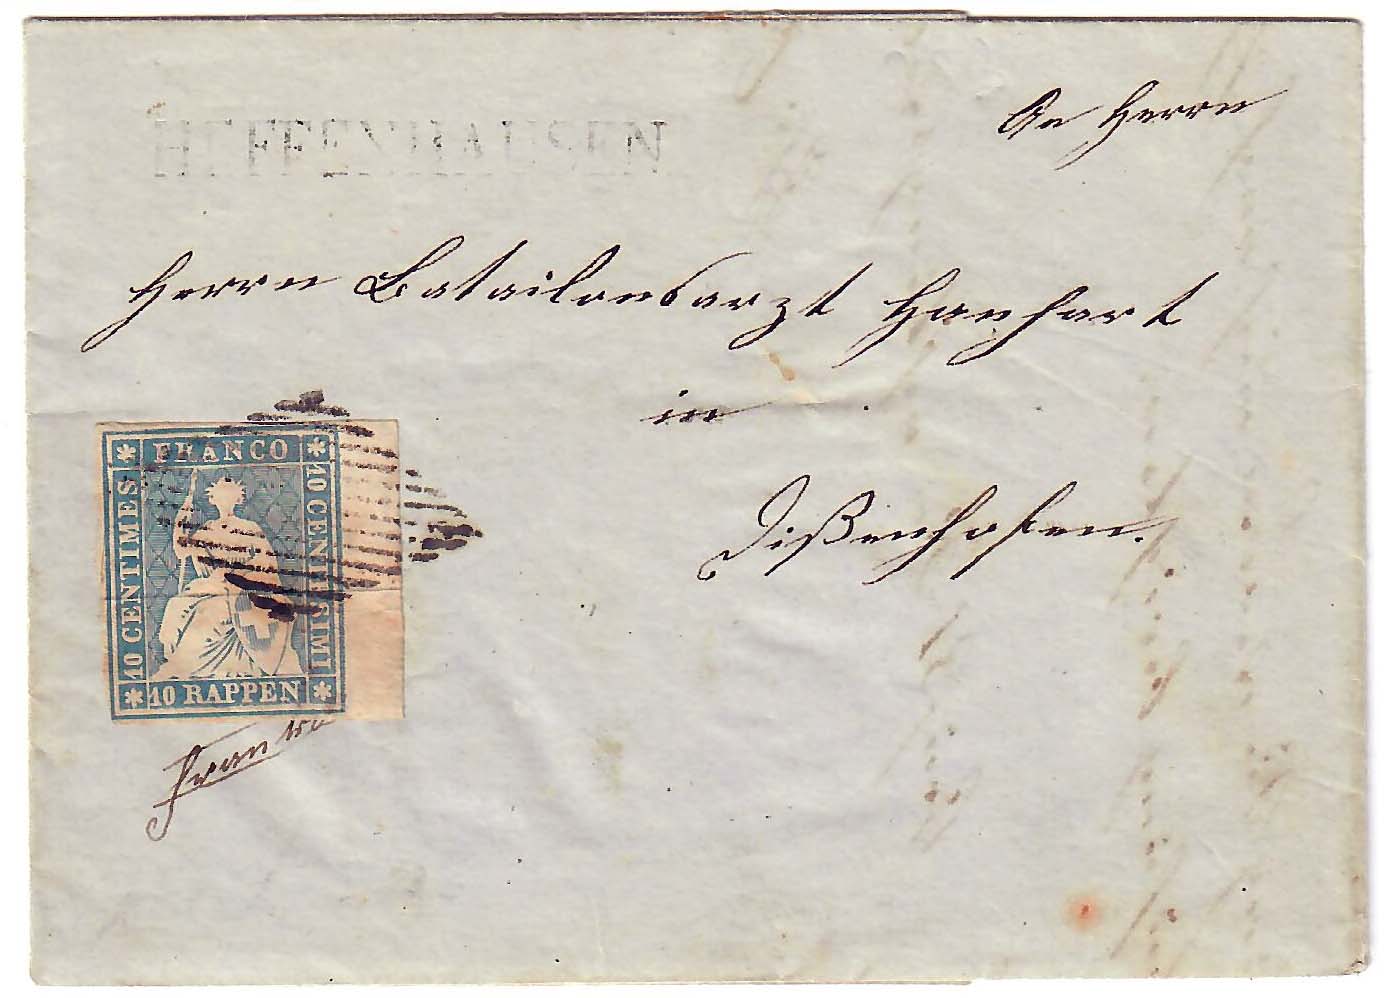 HEFFENHAUSEN
An Herrn
Herrn Batailonsarzt Hanhart
in
Dißenhofen.
FRANCO
10 CENTIMES
10 CENTESIMI
10 RAPPEN
Franko